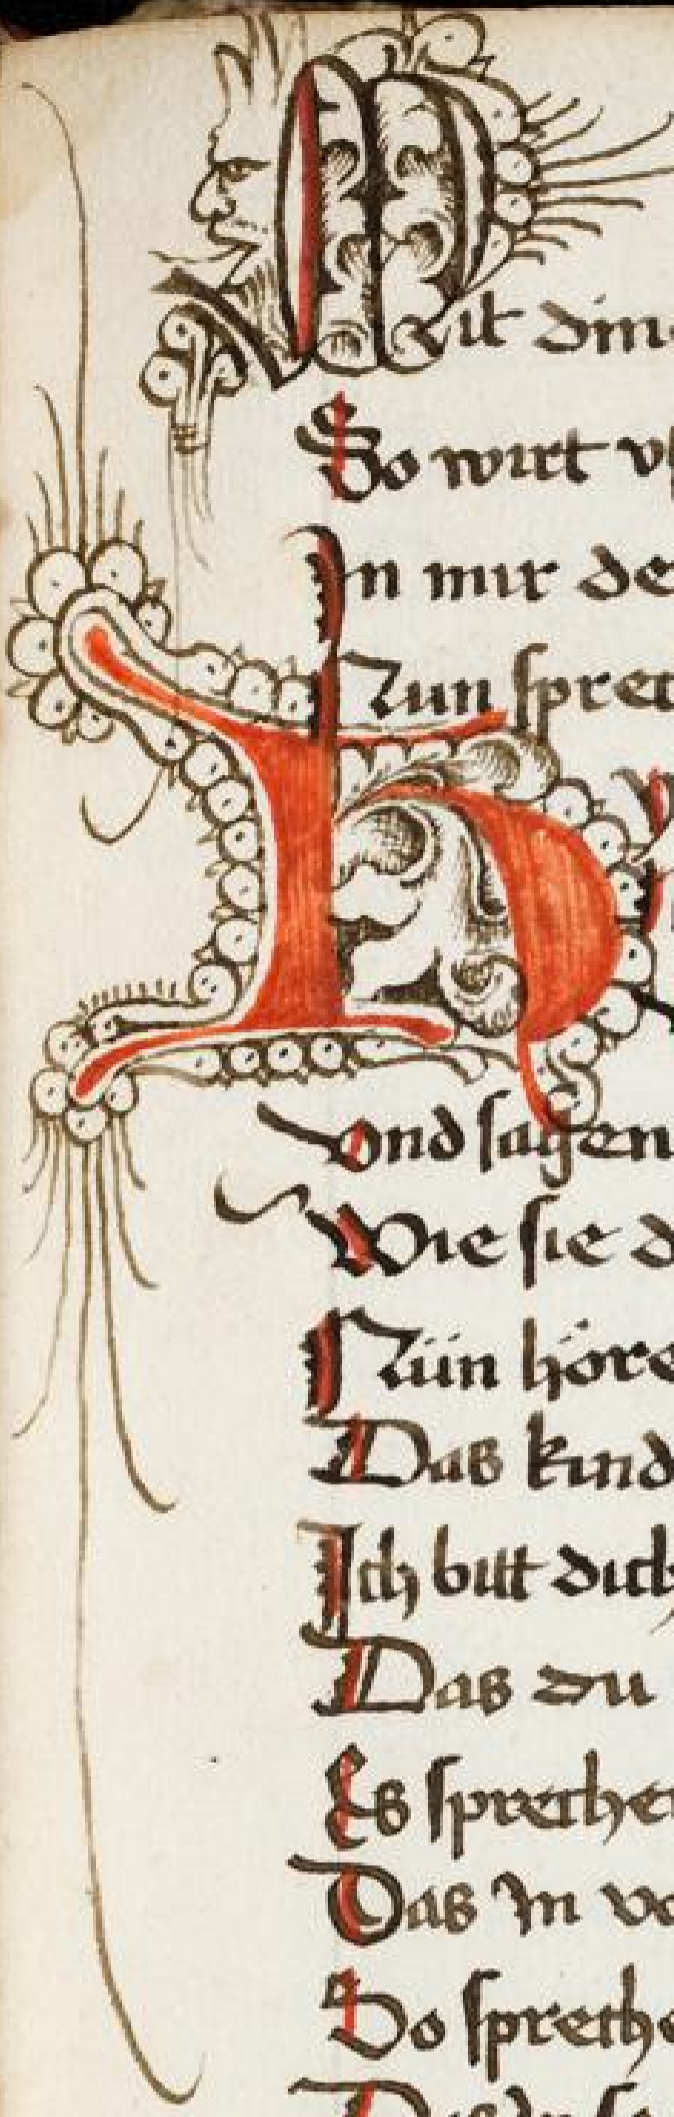 Mit din
So wirt v
In mir de
Nun sprec
h
vnd sagen
Wie sie d
Nün höre
Das kind
Ich bitt dich
Das du
Es spreche
Das In vo
So spreche